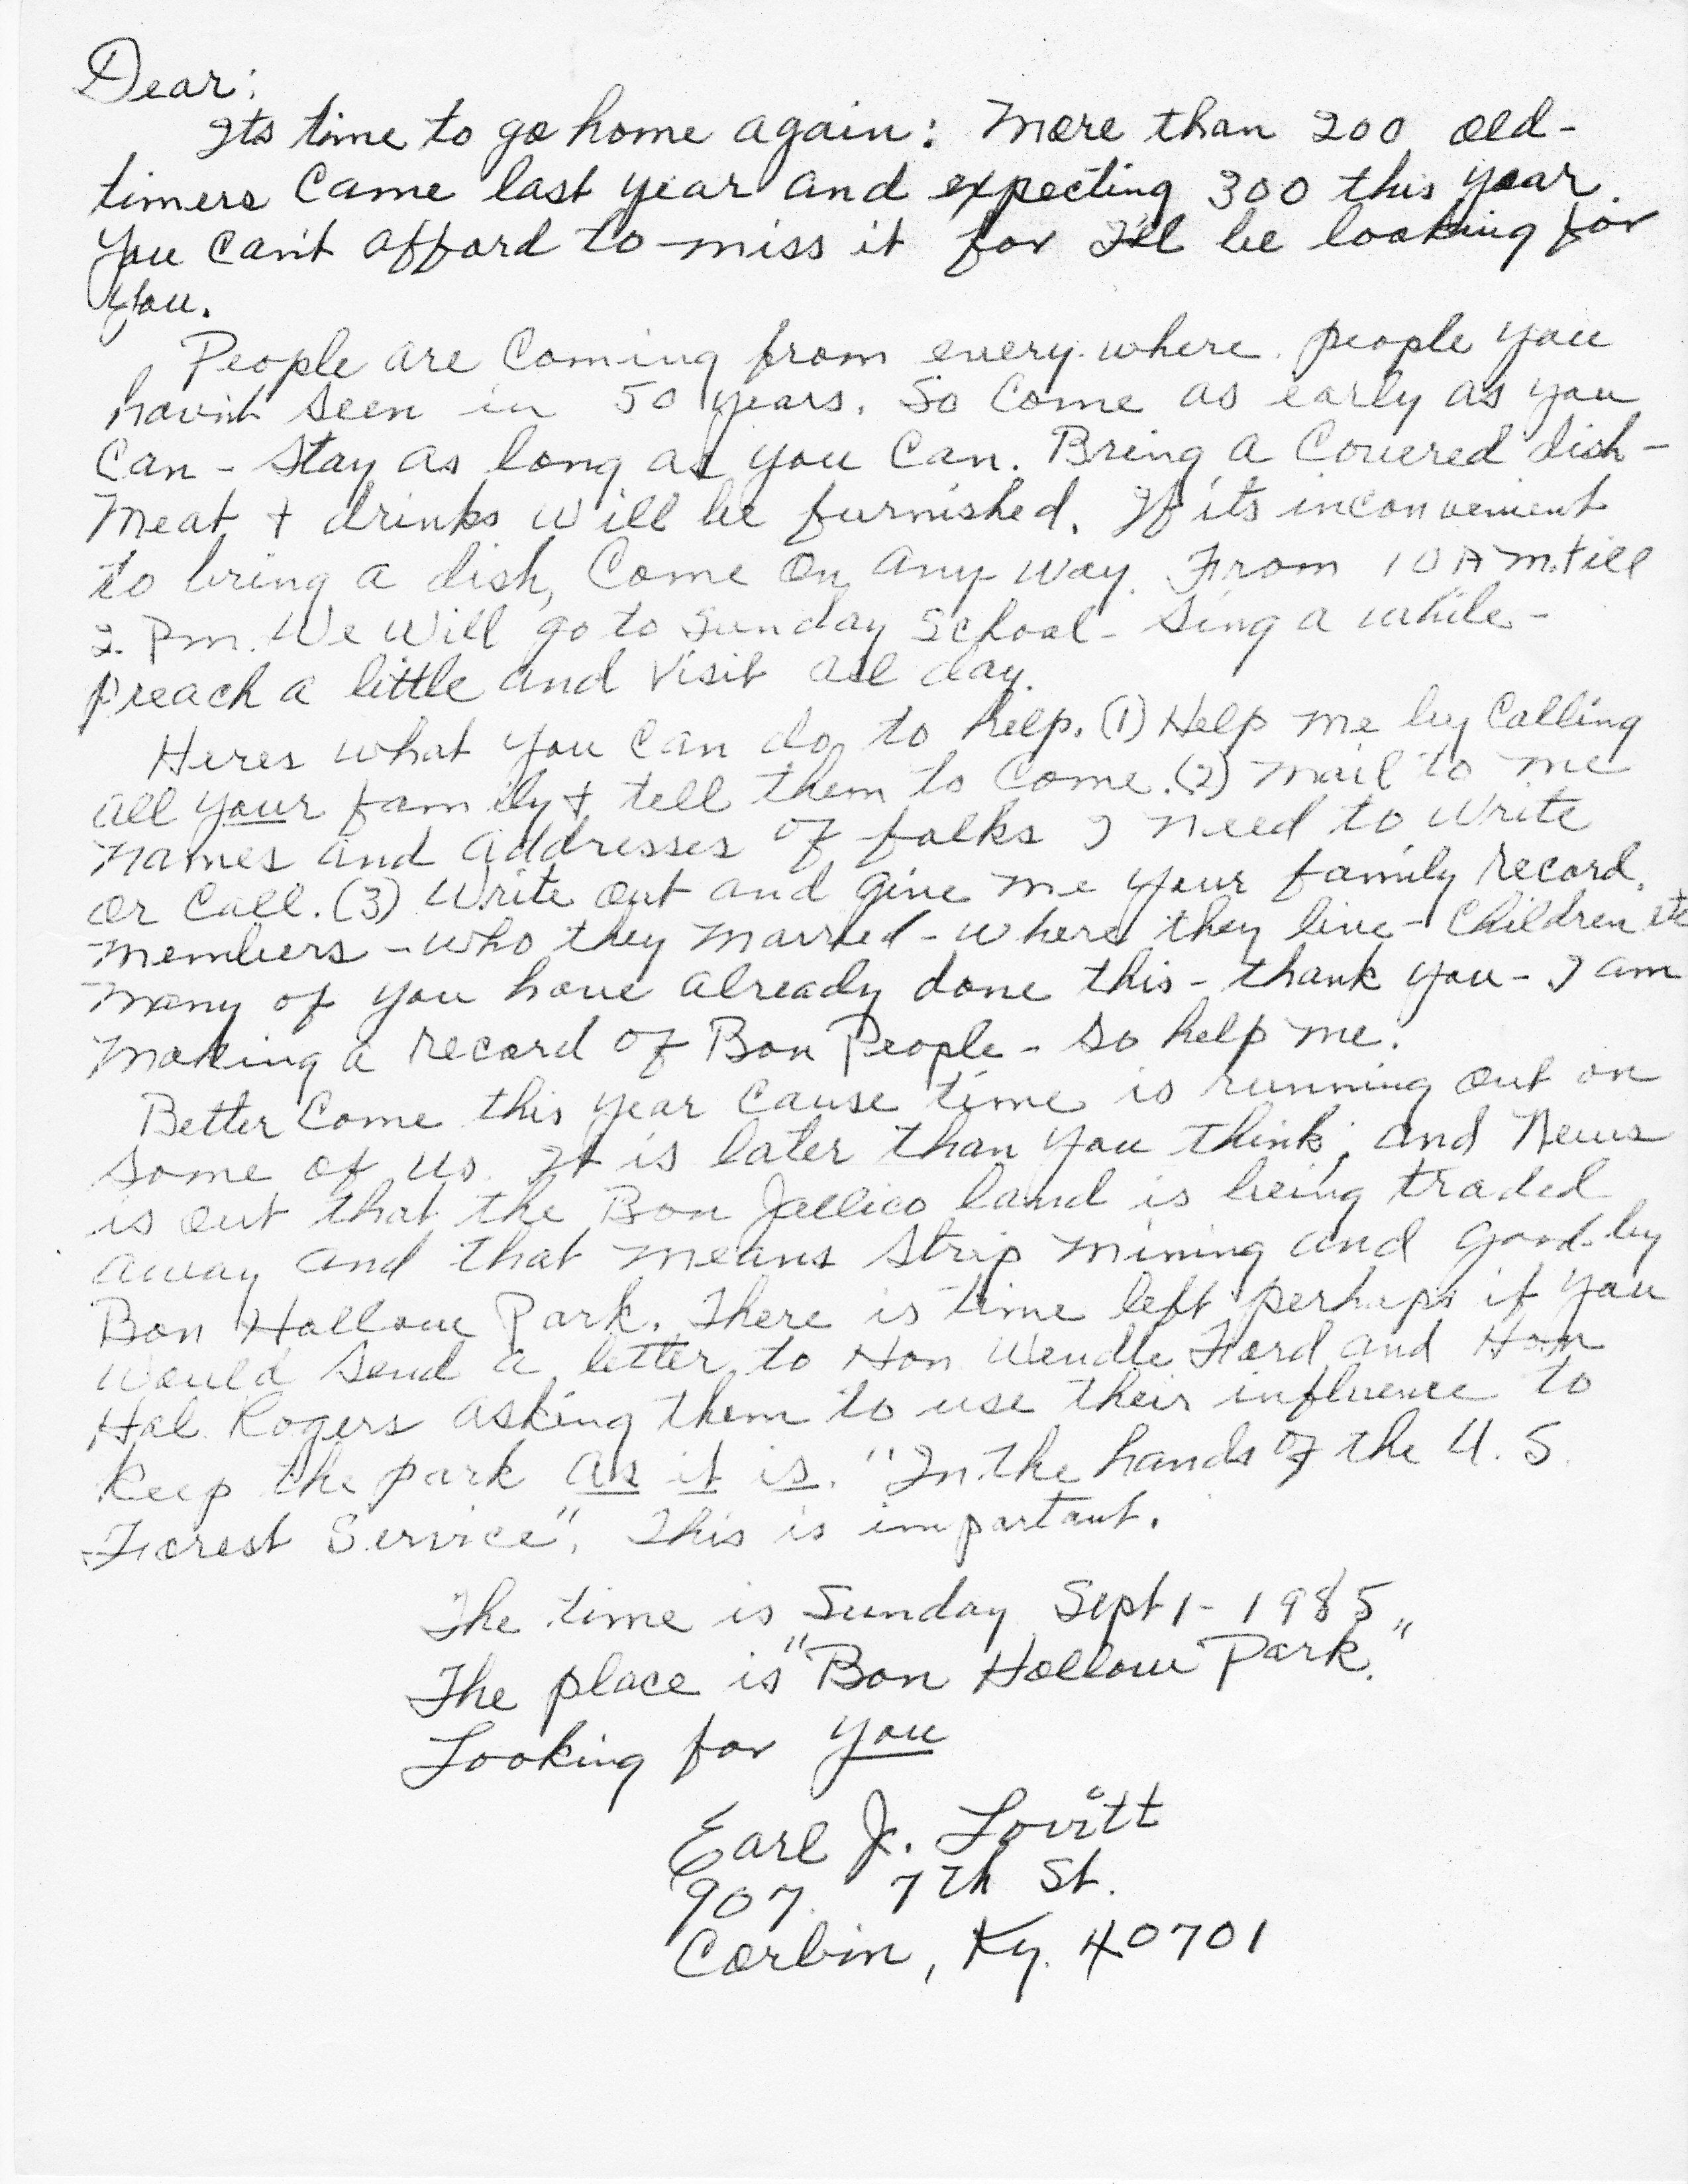 Dear:
Its time to go home again: More than 200 old-
timers came last year and expecting 300 this year.
You can't afford to miss it for I'll be looking for
you.
People are coming from every where. people you
hav'nt seen in 50 years. So come as early as you
can - stay as long as you can. Bring a covered dish -
Meat + drinks will be furnished. If its inconvenient
to bring a dish, come on any way. From 10 A m. till
2. Pm. We will go to Sunday School - sing a while -
preach a little and visit all day.
Heres what you can do to help. (1) Help me by calling
all your family + tell them to come. (2) Mail to me
names and addresses of folks I need to write
or call. (3) Write out and give me your family record.
members - who they married - where they live - children etc
Many of you have already done this - thank you - I am
making a record of Bon People - so help me.
Better come this year cause time is running out on
some of us. It is later than you think, and news
is out that the Bon Jellico land is being traded
away and that means strip mining and good-by
Bon Hollow Park. There is time left perhaps if you
would send a letter to Hon Wendle Ford and Hon
Hal Rogers asking them to use their influence to
keep the park as it is. "In the hands of the U. S.
Forest Service". This is important.
The time is Sunday Sept 1 - 1985
The place is "Bon Hollow Park."
Looking for you
Earl Jr. Lovitt
907 7th St.
Corbin, Ky. 40701